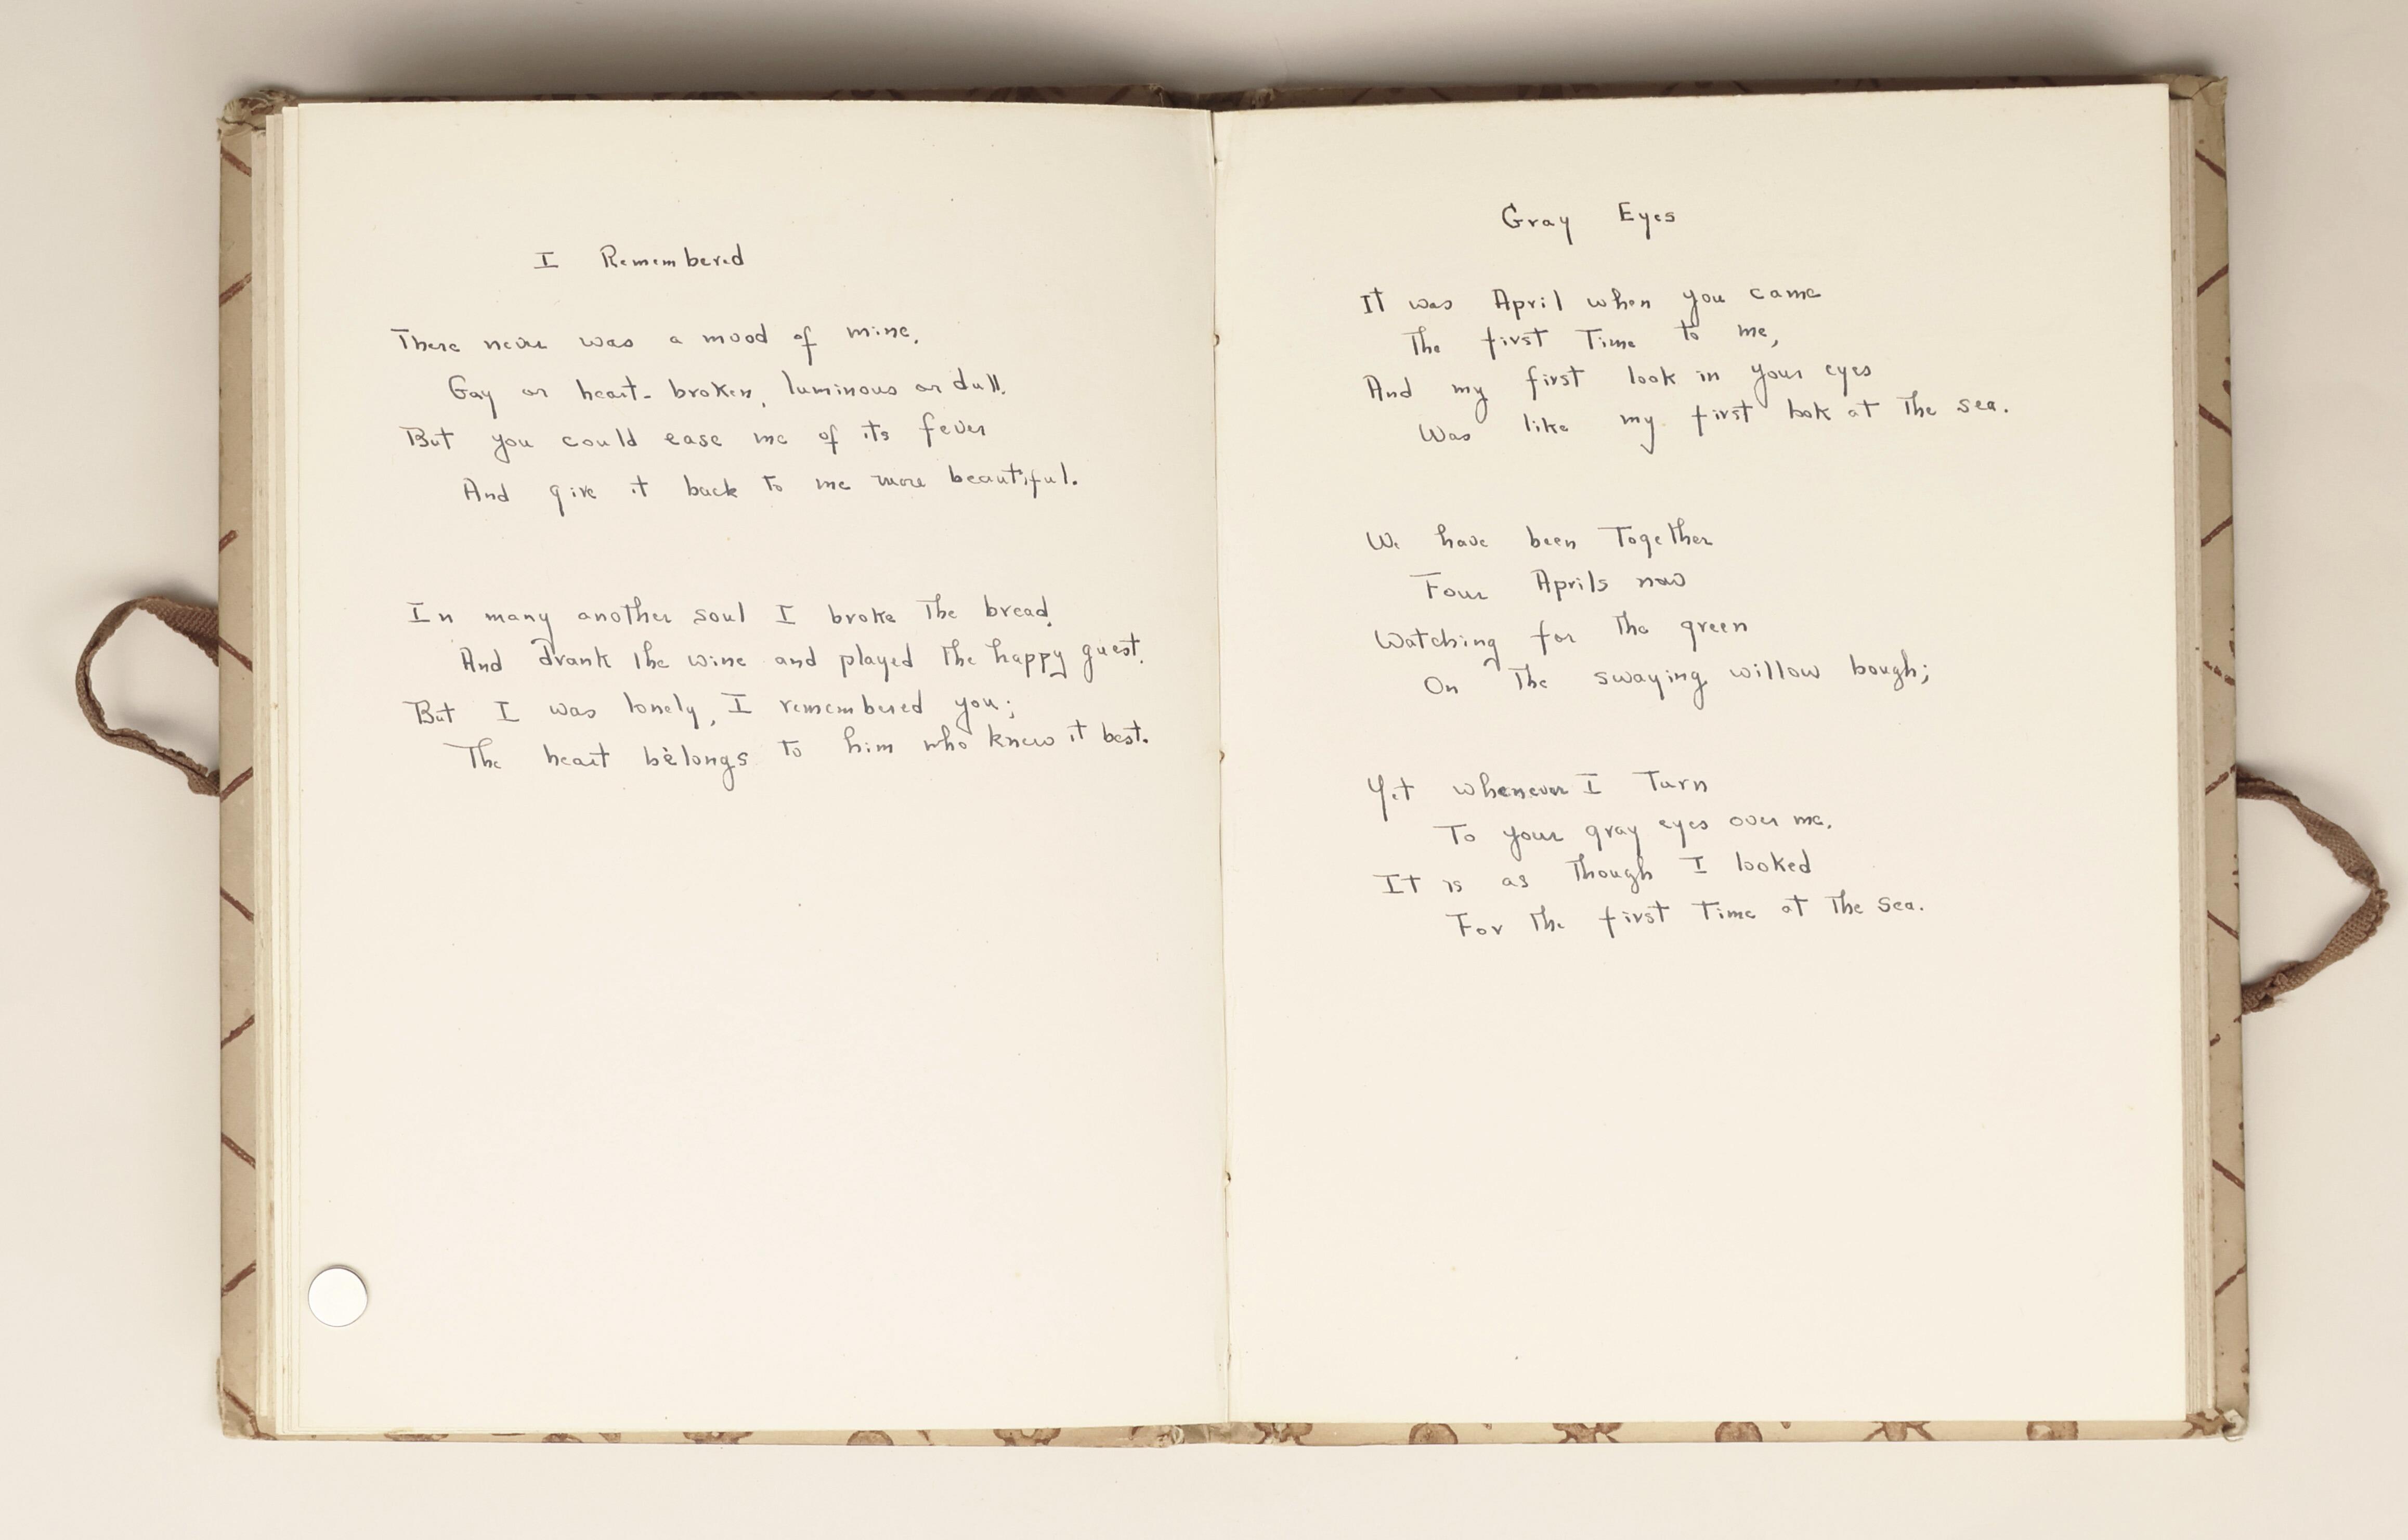 I Remembered
There never was a mood of mine,
Gay or heart-broken, luminous or dull,
But you could ease me of its fever
And give it back to me more beautiful.
In many another soul I broke the bread,
And drank the wine and played the happy guest,
But I was lonely, I remembered you;
The heart belongs to him who knew it best.
Gray Eyes
It was April when you came
The first time to me,
And my first look in your eyes
Was like my first look at the sea.
We have been together
Four Aprils now
Watching for the green
On the swaying willow bough;
Yet whenever I turn
To your gray eyes over me,
It is as though I looked
For the first time at the sea.